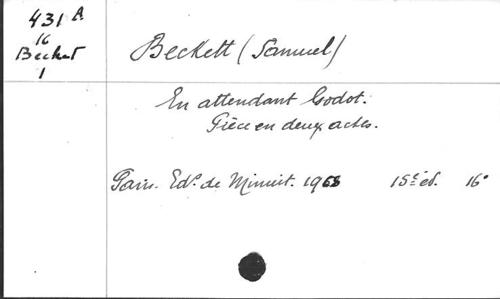 431 A
16
Becket
1
Beckett (Samuel)
En attendant Godot.
Pièce en deux actes.
Paris. Edns. de Minuit. 1968 15e éd. 16°